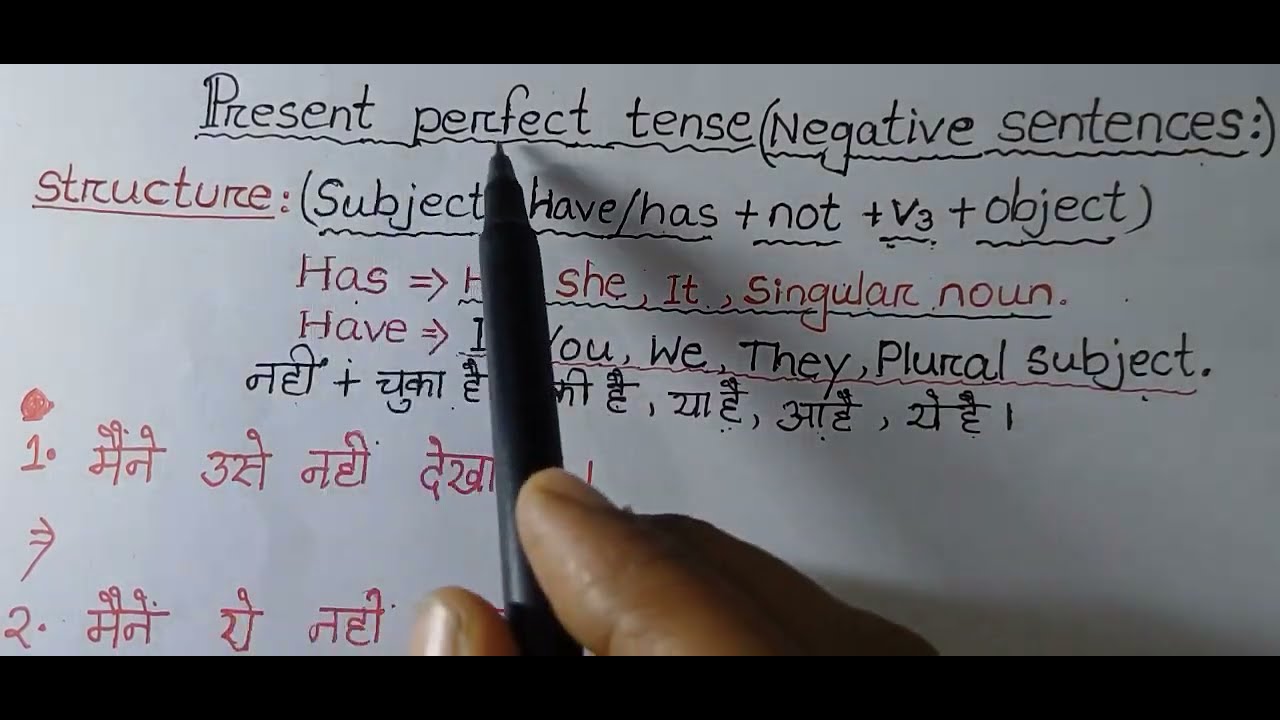 Present perfect tense (Negative sentences:)
Structure: (Subject Have/has + not + V3 + object)
Has => she, It, Singular noun.
Have => I You, We, They, Plural subject.
नहीं + चुका है की है, या है, आ है, ये है।
1. मैंने उसे नहीं देखा ।
⇒
2. मैंनें ये नहीं